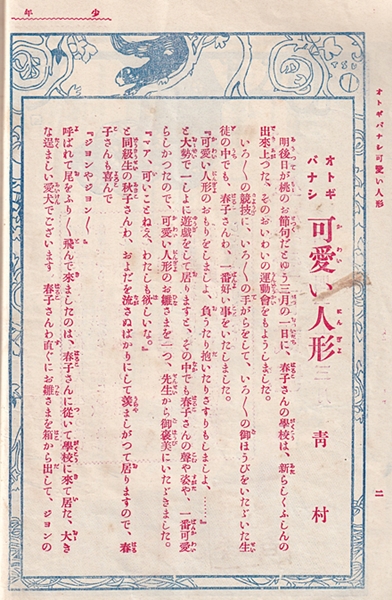 少年
オトギバナシ可愛い人形
二
オトギバナシ 可愛い人形 青村
明後日が桃のお節句だとゆう三月の一日に、春子さんの學校は、新らしくふしんの
出來上つた、そのおいわいの運動會をもようしました。
いろ〱の競技に、いろ〱の手がらをして、いろ〱の御ほうびをいたゞいた生
徒の中でも、春子さんわ、一番好い事をいたしました。
『可愛い人形のおもりをしましよ、負うたり抱いたりさすりもしましよ、……』
と大勢で一しよに遊戯をして居りますと、その中でも春子さんの聲や姿や、一番可愛
らしかつたので、可愛い人形のお雛さまを一つ、先生から御褒美にいたゞきました。
『マア、可いことねえ、わたしも欲しいな。』
と同級生の秋子さんわ、およだを流さぬばかりにして羨ましがつて居りますので、春
子さんも喜んで
『ジヨンやジヨン〱』
呼ばれて尾をふり〱飛んで來ましたのは、春子さんに從いて學校に來て居た、大き
な逞ましい愛犬でございます 春子さんわ直ぐにお雛さまを箱から出して、ジヨンの